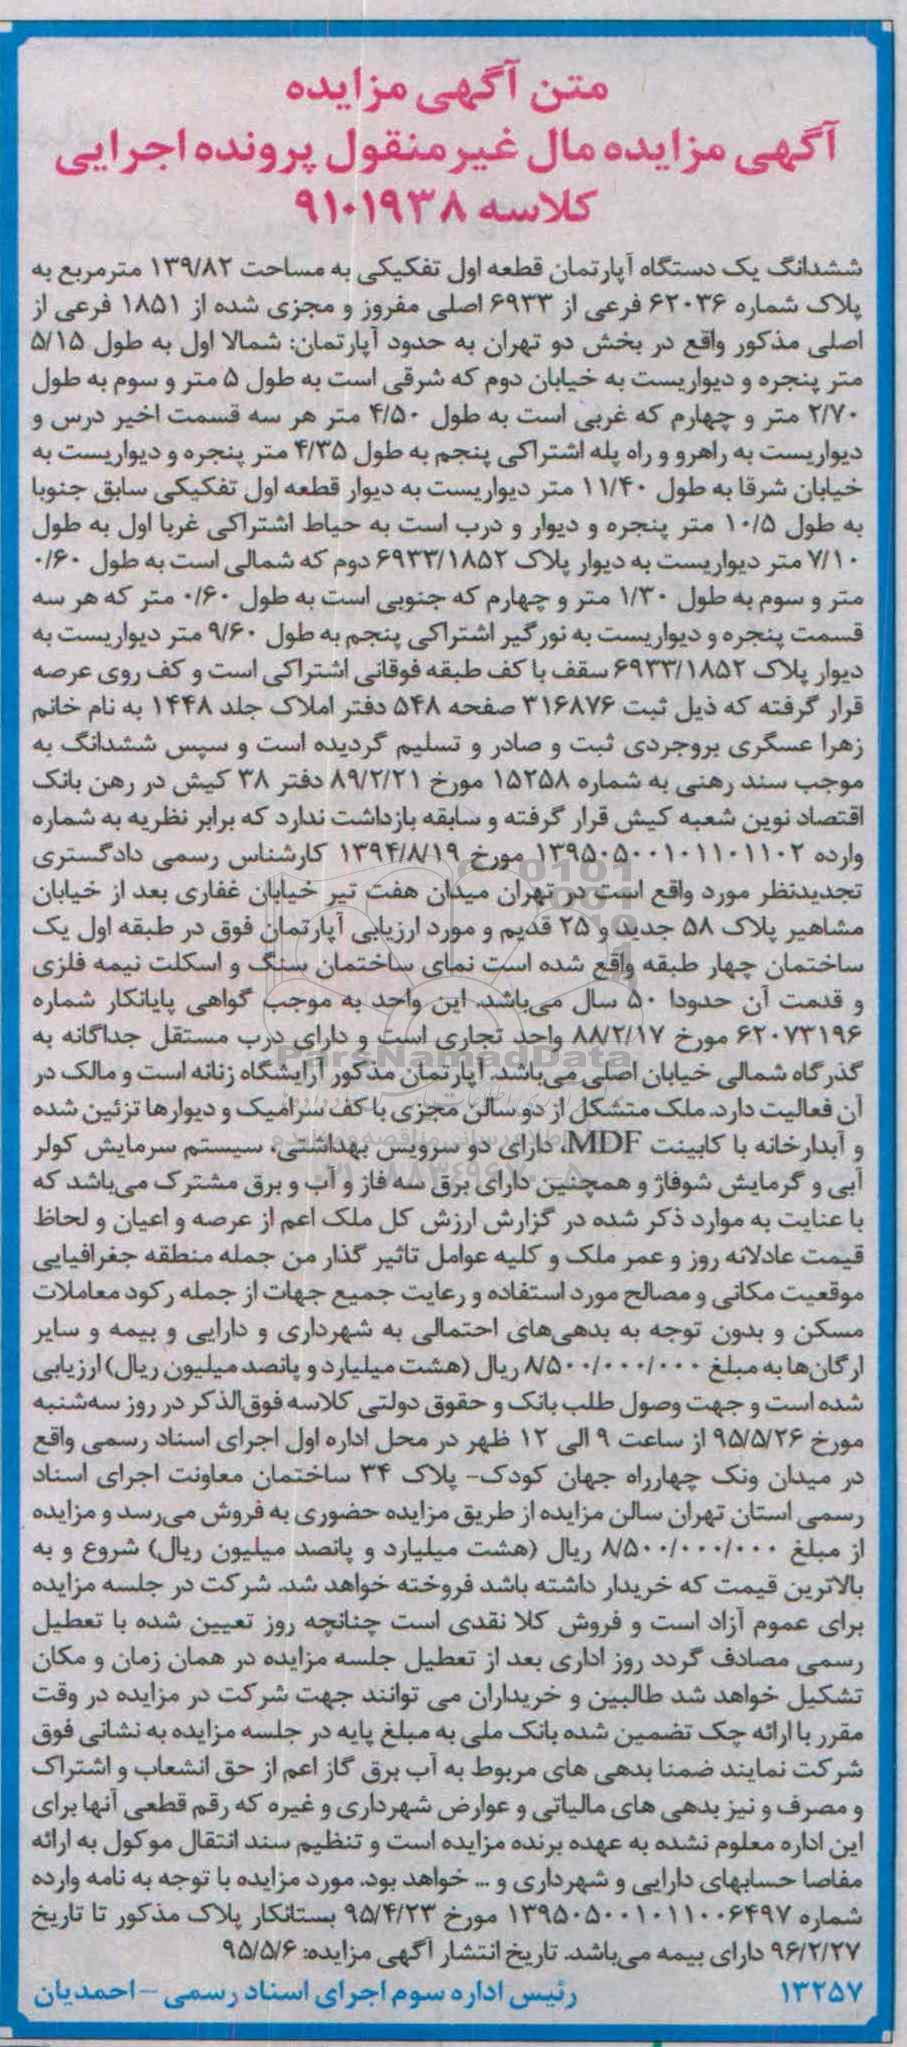 متن آگهی مزایده
آگهی مزایده مال غیر منقول پرونده اجرایی
کلاسه ۹۱۰۱۹۳۸
ششدانگ یک دستگاه آپارتمان قطعه اول تفکیکی به مساحت ۱۳۹/۸۲ مترمربع به
پلاک شماره ۶۲۰۳۶ فرعی از ۶۹۳۳ اصلی مفروز و مجزی شده از ۱۸۵۱ فرعی از
اصلی مذکور واقع در بخش دو تهران به حدود آپارتمان: شمالا اول به طول ۵/۱۵
متر پنجره و دیواریست به خیابان دوم که شرقی است به طول ۵ متر و سوم به طول
۲/۷۰ متر و چهارم که غربی است به طول ۴/۵۰ متر هر سه قسمت اخیر درس و
دیواریست به راهرو و راه پله اشتراکی پنجم به طول ۴/۳۵ متر پنجره و دیواریست به
خیابان شرقا به طول ۱۱/۴۰ متر دیواریست به دیوار قطعه اول تفکیکی سابق جنوبا
به طول ۱۰/۵ متر پنجره و دیوار و درب است به حیاط اشتراکی غربا اول به طول
۷/۱۰ متر دیواریست به دیوار پلاک ۶۹۳۳/۱۸۵۲ دوم که شمالی است به طول ۰/۶۰
متر و سوم به طول ۱/۳۰ متر و چهارم که جنوبی است به طول ۰/۶۰ متر که هر سه
قسمت پنجره و دیواریست به نورگیر اشتراکی پنجم به طول ۹/۶۰ متر دیواریست به
دیوار پلاک ۶۹۳۳/۱۸۵۲ سقف با کف طبقه فوقانی اشتراکی است و کف روی عرصه
قرار گرفته که ذیل ثبت ۳۱۶۸۷۶ صفحه ۵۴۸ دفتر املاک جلد ۱۴۴۸ به نام خانم
زهرا عسگری بروجردی ثبت و صادر و تسلیم گردیده است و سپس ششدانگ به
موجب سند رهنی به شماره ۱۵۲۵۸ مورخ ۸۹/۲/۲۱ دفتر ۳۸ کیش در رهن بانک
اقتصاد نوین شعبه کیش قرار گرفته و سابقه بازداشت ندارد که برابر نظریه به شماره
وارده ۱۳۹۵۰۵۰۰۱۰۱۱۰۱۱۰۲ مورخ ۱۳۹۴/۸/۱۹ کارشناس رسمی دادگستری
تجدیدنظر مورد واقع است در تهران میدان هفت تیر خیابان غفاری بعد از خیابان
مشاهیر پلاک ۵۸ جدید و ۲۵ قدیم و مورد ارزیابی آپارتمان فوق در طبقه اول یک
ساختمان چهار طبقه واقع شده است نمای ساختمان سنگ و اسکلت نیمه فلزی
و قدمت آن حدودا ۵۰ سال می‌باشد. این واحد به موجب گواهی پایانکار شماره
۶۲۰۷۳۱۹۶ مورخ ۸۸/۲/۱۷ واحد تجاری است و دارای درب مستقل جداگانه به
گذرگاه شمالی خیابان اصلی می‌باشد. آپارتمان مذکور آرایشگاه زنانه است و مالک در
آن فعالیت دارد. ملک متشکل از دو سالن مجزی با کف سرامیک و دیوارها تزئین شده
و آبدارخانه با کابینت MDF، دارای دو سرویس بهداشتی، سیستم سرمایش کولر
آبی و گرمایش شوفاژ و همچنین دارای برق سه فاز و آب و برق مشترک می‌باشد که
با عنایت به موارد ذکر شده در گزارش ارزش کل ملک اعم از عرصه و اعیان و لحاظ
قیمت عادلانه روز و عمر ملک و کلیه عوامل تاثیر گذار من جمله منطقه جغرافیایی
موقعیت مکانی و مصالح مورد استفاده و رعایت جمیع جهات از جمله رکود معاملات
مسکن و بدون توجه به بدهی‌های احتمالی به شهرداری و دارایی و بیمه و سایر
ارگان‌ها به مبلغ ۸/۵۰۰/۰۰۰/۰۰۰ ریال (هشت میلیارد و پانصد میلیون ریال) ارزیابی
شده است و جهت وصول طلب بانک و حقوق دولتی کلاسه فوق‌الذکر در روز سه‌شنبه
مورخ ۹۵/۵/۲۶ از ساعت ۹ الی ۱۲ ظهر در محل اداره اول اجرای اسناد رسمی واقع
در میدان ونک چهارراه جهان کودک- پلاک ۳۴ ساختمان معاونت اجرای اسناد
رسمی استان تهران سالن مزایده از طریق مزایده حضوری به فروش می‌رسد و مزایده
از مبلغ ۸/۵۰۰/۰۰۰/۰۰۰ ریال (هشت میلیارد و پانصد میلیون ریال) شروع و به
بالاترین قیمت که خریدار داشته باشد فروخته خواهد شد. شرکت در جلسه مزایده
برای عموم آزاد است و فروش کلا نقدی است چنانچه روز تعیین شده با تعطیل
رسمی مصادف گردد روز اداری بعد از تعطیل جلسه مزایده در همان زمان و مکان
تشکیل خواهد شد طالبین و خریداران می توانند جهت شرکت در مزایده در وقت
مقرر با ارائه چک تضمین شده بانک ملی به مبلغ پایه در جلسه مزایده به نشانی فوق
شرکت نمایند ضمنا بدهی های مربوط به آب برق گاز اعم از حق انشعاب و اشتراک
و مصرف و نیز بدهی های مالیاتی و عوارض شهرداری و غیره که رقم قطعی آنها برای
این اداره معلوم نشده به عهده برنده مزایده است و تنظیم سند انتقال موکول به ارائه
مفاصا حسابهای دارایی و شهرداری و ... خواهد بود. مورد مزایده با توجه به نامه وارده
شماره ۱۳۹۵۰۵۰۰۱۰۱۱۰۰۶۴۹۷ مورخ ۹۵/۴/۲۳ بستانکار پلاک مذکور تا تاریخ
۹۶/۲/۲۷ دارای بیمه می‌باشد. تاریخ انتشار آگهی مزایده: ۹۵/۵/۶
۱۳۲۵۷ رئیس اداره سوم اجرای اسناد رسمی -احمدیان
ParsNamadData